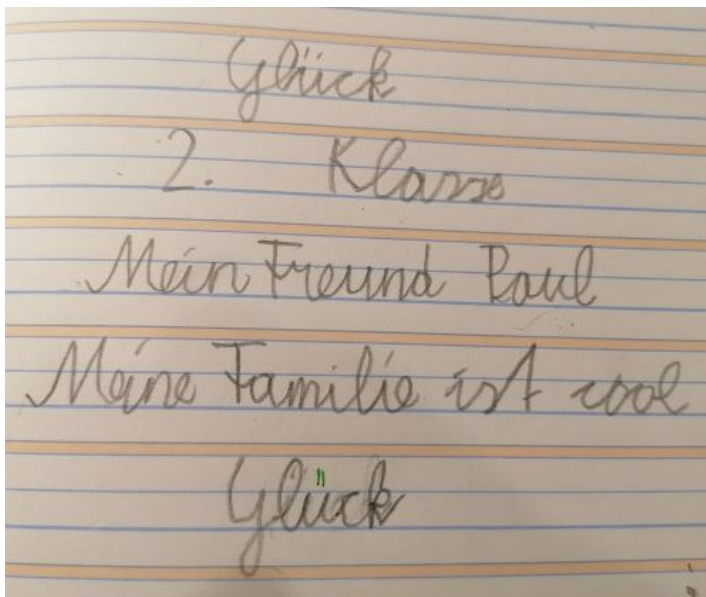 Glück
2. Klasse
Mein Freund Paul
Meine Familie ist cool
Glück